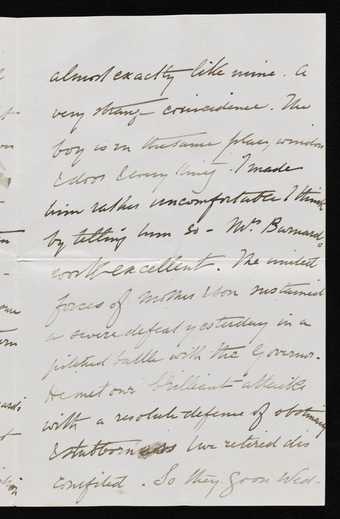 almost exactly like mine. A
very strange coincidence. The
boy is in the same place, window
& door & every thing. I made
him rather uncomfortable I think
by telling him so – Mrs Barnard's
work excellent. The united
forces of Mother & son sustained
a severe defeat yesterday in a
pitched battle with the Governor.
He met our brilliant attacks
with a resolute defense of obstinacy
& stubborness & we retired dis
comfited. So they go on Wed-